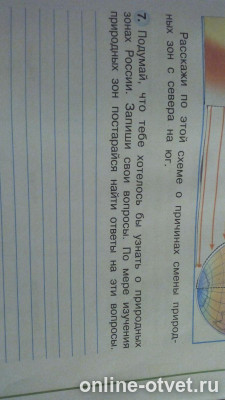 Расскажи по этой схеме о причинах смены природ-
ных зон с севера на юг.
7. Подумай, что тебе хотелось бы узнать о природных
зонах России. Запиши свои вопросы. По мере изучения
природных зон постарайся найти ответы на эти вопросы.
online-otvet.ru